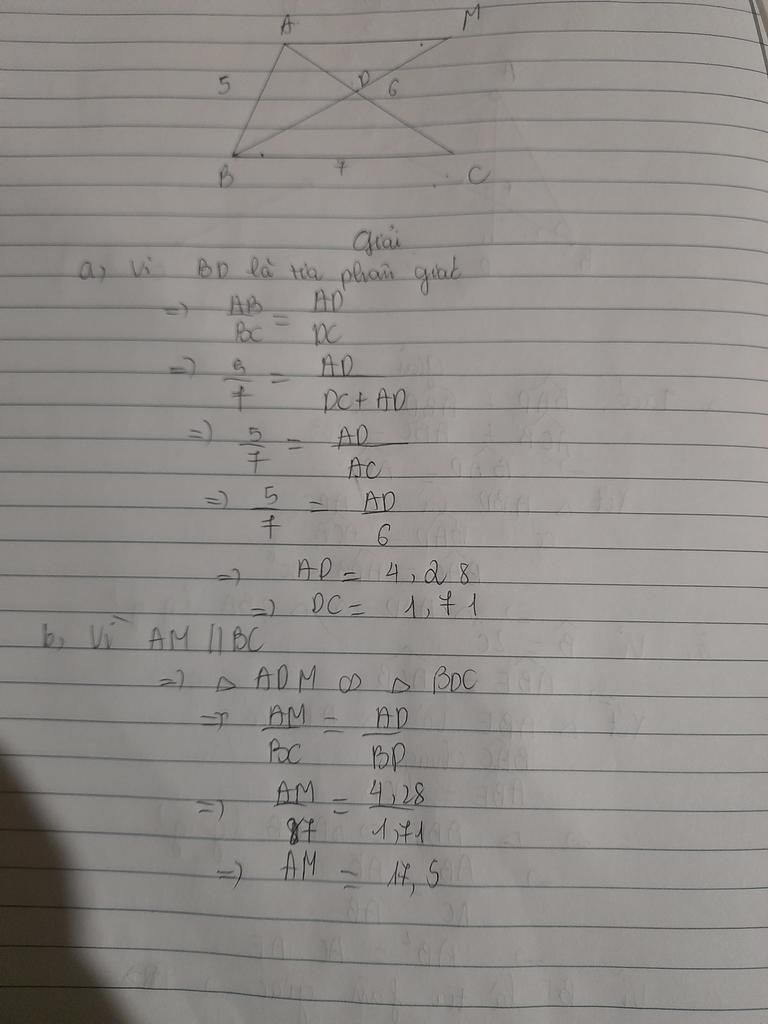 A M
5 D 6
B 7 C
Giải
a, Vì BD là tia phân giác
=> AB/BC = AD/DC
=> 5/7 = AD/DC + AD
=> 5/7 = AD/AC
=> 5/7 = AD/6
=> AD = 4,28
=> DC = 1,71
b, Vì AM // BC
=> △ ADM ∽ △ BDC
=> AM/BC = AD/BD
=> AM/7 = 4,28/1,71
=> AM = 17,5